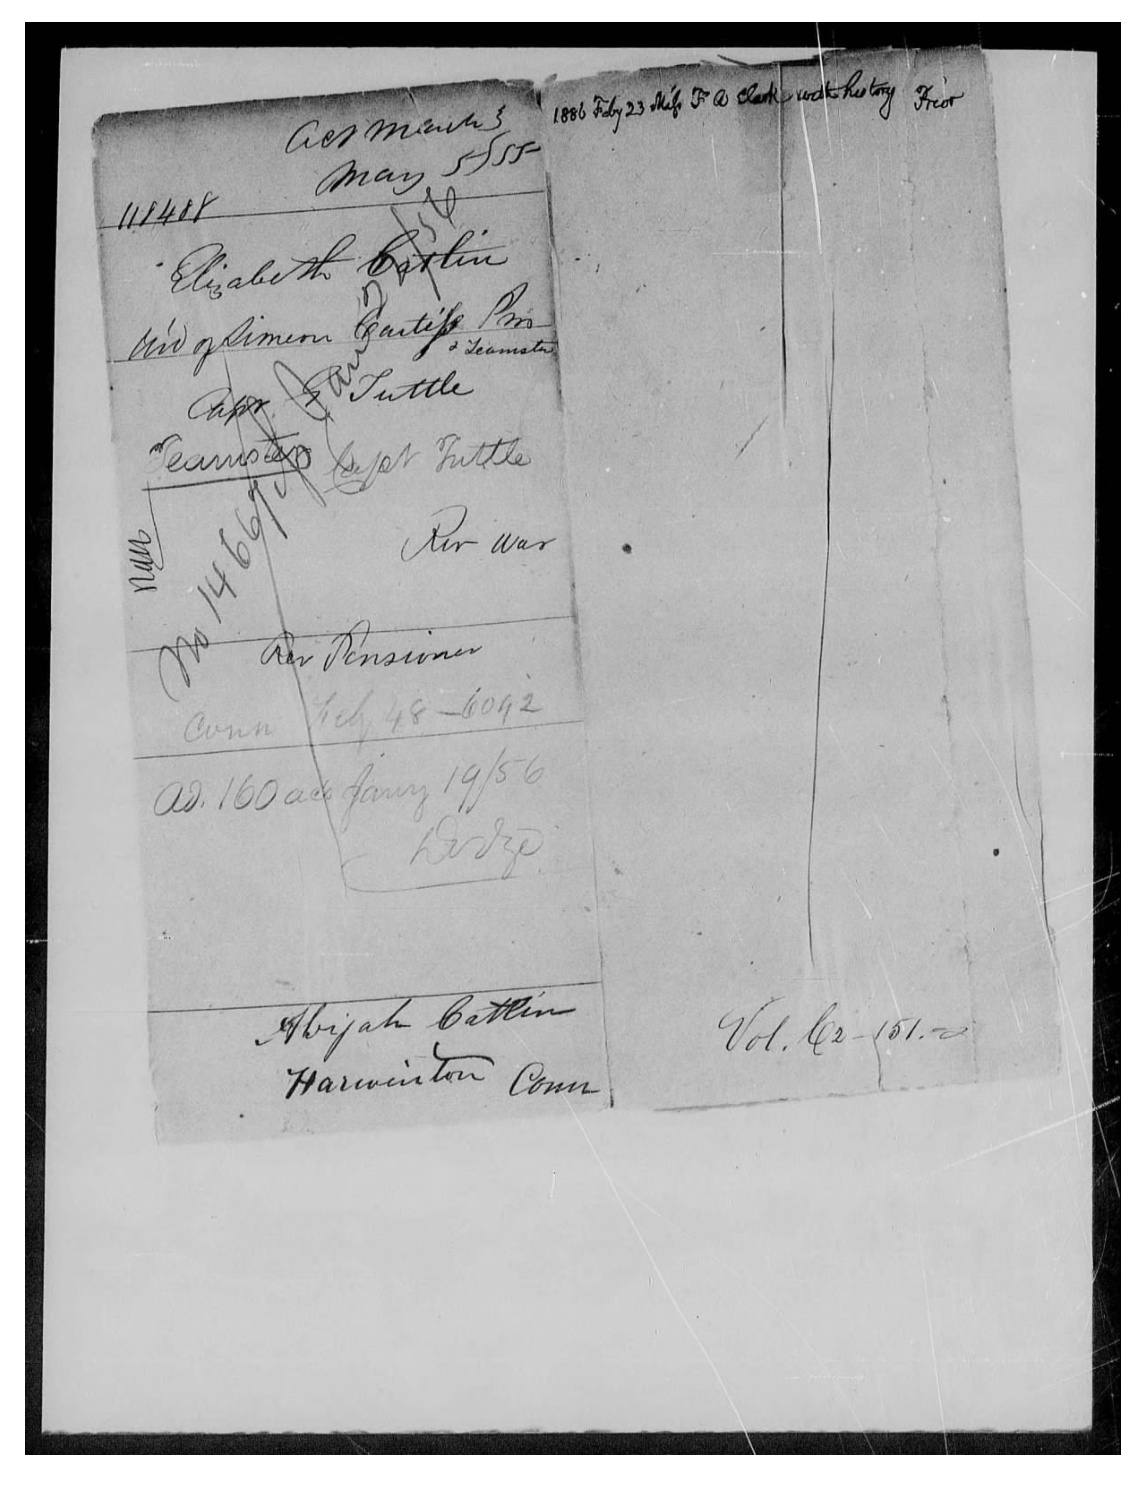 Act March 3
May 5/55
118488
Elizabeth Catlin
Wid of Simeon Curtiss Priv
& Teamster
Capt Tuttle
Teamster Capt Tuttle
Rev War
No 1466
Rev Pensioner
Conn Feby 48 – 6092
ad. 160 acs Jany 19/56
Dodge
Abijah Catlin
Harwinton Conn
1886 Feby 23 Miss F A Clark with history Frior
Vol. C2 - 151.